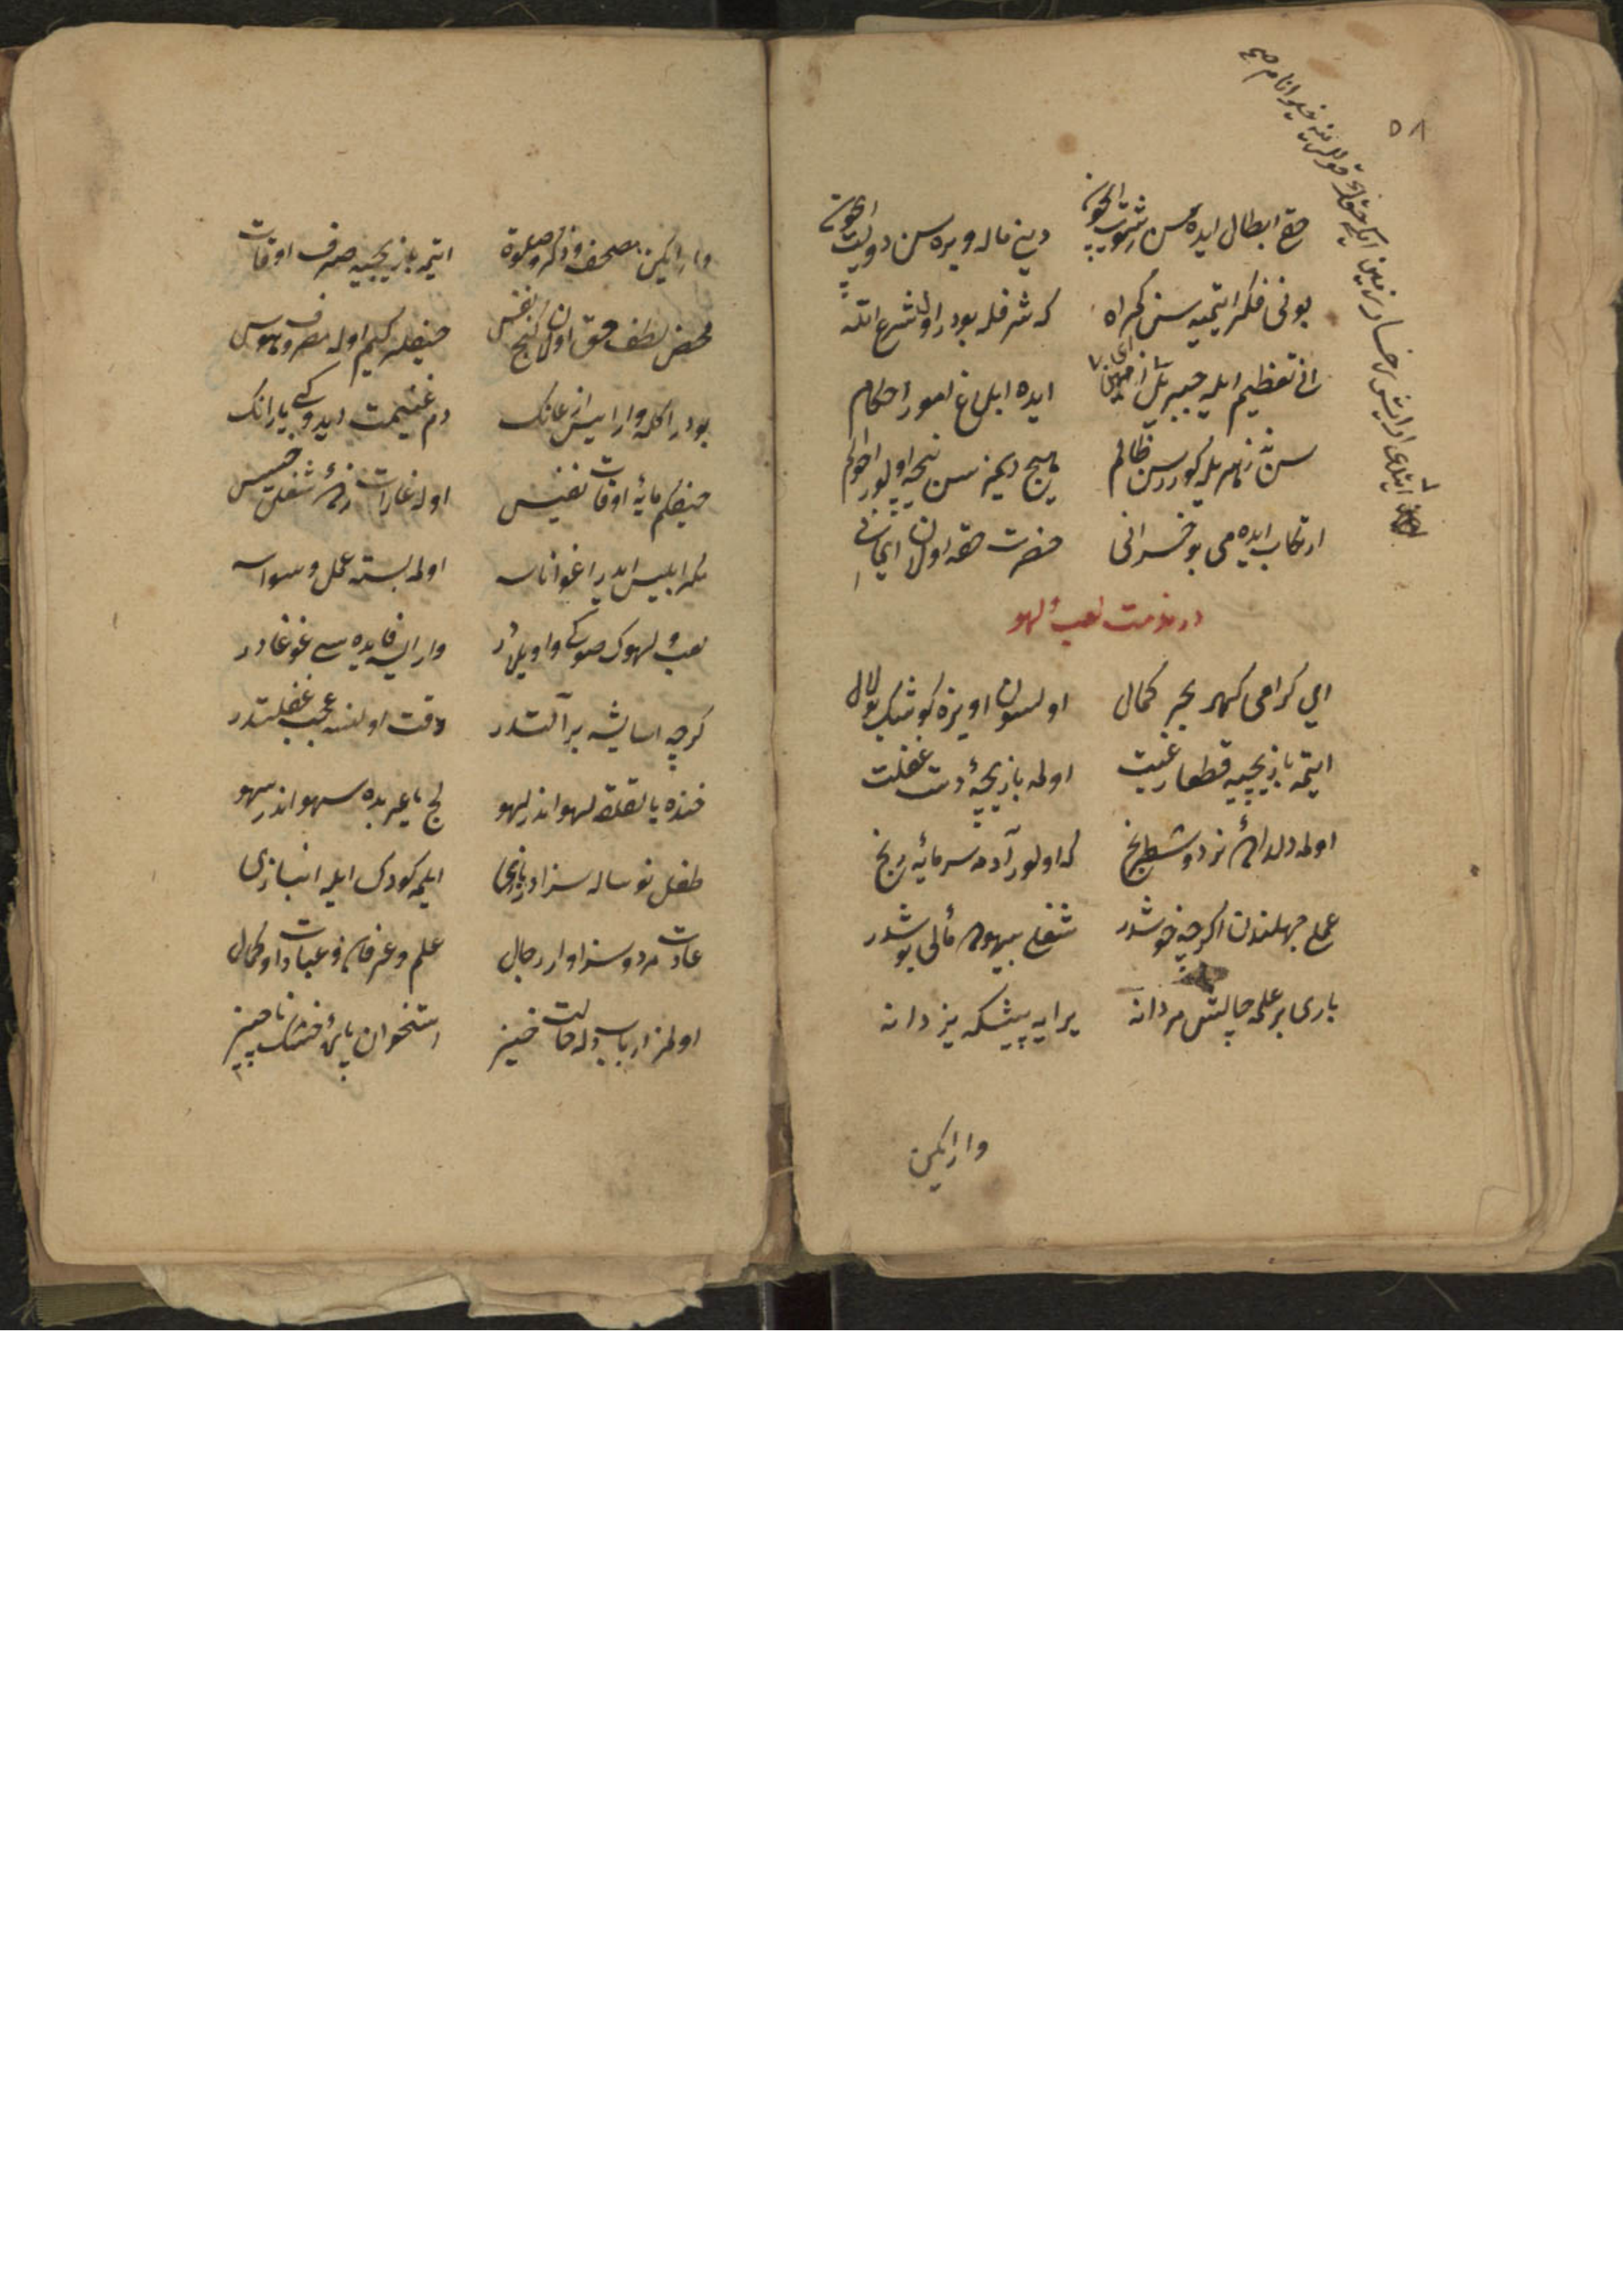 ٥٨
حق ابطال ایده سن رشوت ایچون دینی ماله ویره سن دولت ایچون
بونی فکر ایتمیه سن گمراه که شرفله بودر اول شرع اله
انی تعظیم ایله جبریل ایده ابلاغ امور احکام
سن نه زهر یله کوررسن ظالم هیچ دیمزسن نیجه اولور احوالم
ارتکاب ایده می بو خسرانی حضرت حقه اولان ایمانی
در مذمت لعب و لهو
ای کرامی کهر بحر کمال اولسون اویزه کوشک بو لال
ایتمه بازیچیه قطعا رغبت اولمه بازیچهٔ دست غفلت
اولمه دلداده نرد و شطرنج که اولور آدمه سرمایهٔ رنج
عملی جهلندن اکرچه خوشدر شغلی بیهوده مآلی بوشدر
باری بر علمه چالش مردانه یرایه پیشکه یزدانه
وار ایکن
وار ایکن مصحف و ذکر و صلوة ایتمه بازیچیه صرف اوقات
محض لطف حق اولان کنج نفس حیفله کیم اوله مصروف هوس
بودر اکله وار ایسه اذعانک دم غنیمت دیدوکی یارانک
حیفکم مایهٔ اوقات نفیس اوله غارت زدهٔ شغل خسیس
مکر ابلیس ایدر اغوا ناسه اولمه بسته عمل وسواسه
لعب و لهوک صوکی واویلادر وار ایسه فایده سی غوغادر
کرچه اسایشه بر آلتدر وقت اولنسه عجب غفلتدر
خنده یا لقلقه لهو اندر لهو لج یا عربده سهو اندر سهو
طفل نوساله سزادر بازی ایلمه کودک ایله انبازی
عادت مرد و سزاوار رجال علم و عرفان و عبادات و کمال
اولمز ارباب دله حالت خیز استخوان پارهٔ خشک ناچیز